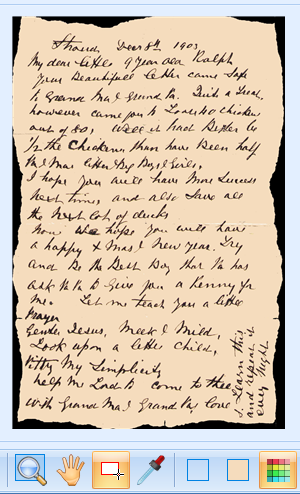 Strood, Decr 8th 1903
My dear little 9 year old Ralph
Your Beautifull Letter came Safe
to Grand Ma & Grand Pa. Such a Treat,
however came you to Loose 40 Chickens
out of 80, Well it had Better be
the Chickens than have Been half
Pa & Mas little Big Boys & Girls,
I hope you will have more Success
next time, and also Save all
the next lot of ducks
Now we hope you will have
a happy X mas & New year. Try
and Be the Best Boy that Pa has
ask Pa to Give you a Penny for
me. Let me teach you a little
Prayer
Gentle Jesus, Meek & Mild,
Look upon a little Child,
Pitty My Simplicity
help me Lord to come to thee
With Grand Ma & Grand Pa, love
Learn this,
and repeat it
ever Night